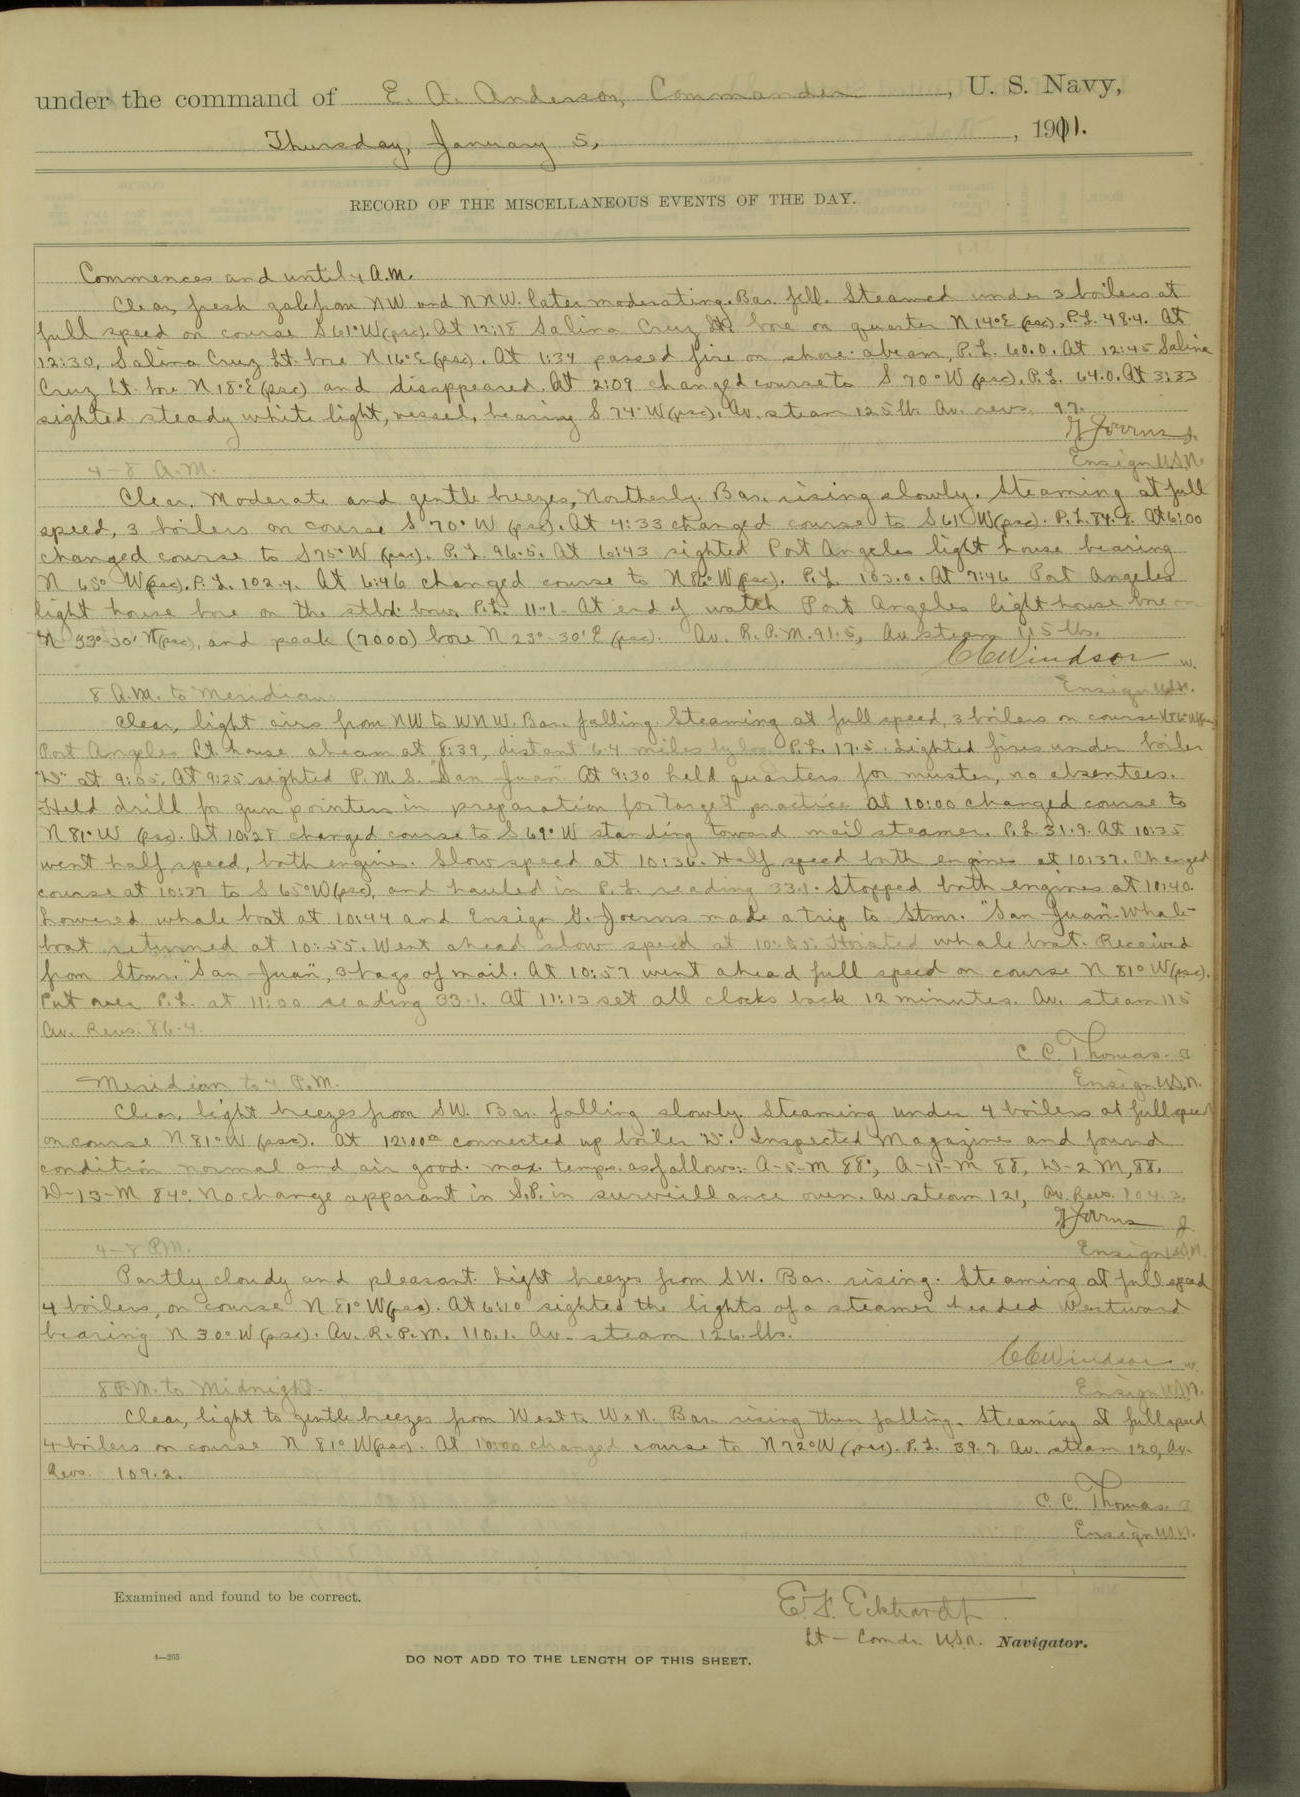 under the command of E. A. Anderson, Commander, U. S. Navy,
Thursday, January 5, 1911.
RECORD OF THE MISCELLANEOUS EVENTS OF THE DAY.
Commences and until 4 A.M.
Clear, fresh gale from NW and NNW. later moderating. Bar. fell. Steamed under 3 boilers at
full speed on course S 61° W (psc). At 12:18 Salina Cruz Lt. bore on quarter N 14° E (psc), P.L. 48.4. At
12:30, Salina Cruz Lt. bore N 16° E (psc). At 1:34 passed fire on shore abeam, P.L. 60.0. At 12:45 Salina
Cruz Lt. bore N 18° E (psc) and disappeared. At 2:09 changed course to S 70° W (psc). P.L. 64.0. At 3:33
sighted steady white light, vessel, bearing S 74° W (psc). Av. steam 125 lb. Av. revs. 97.
G Joerns J.
Ensign U.S.N.
4-8 A.M.
Clear. Moderate and gentle breezes, Northerly. Bar. rising slowly. Steaming at full
speed, 3 boilers on course S 70° W (psc). At 4:33 changed course to S 61° W (psc). P.L. 84. At 6:00
changed course to S 75° W (psc). P.L. 96.5. At 6:43 sighted Port Angeles light house bearing
N 65° W (psc). P.L. 102.4. At 6:46 changed course to N 86° W (psc). P.L. 103.0. At 7:46 Port Angeles
light house bore on the stbd. bow. P.L. 11.1. At end of watch Port Angeles light-house bore on
N 33°-30' W (psc), and peak (7000) bore N 23°-30' E (psc). Av. R.P.M. 91.5, Av. steam 115 lbs.
C C Windsor w.
Ensign U.S.N.
8 A.M. to Meridian
Clear, light airs from NW to WNW. Bar. falling. Steaming at full speed, 3 boilers on course N 86° W (psc)
Port Angeles Lt. house abeam at 8:39, distant 6.4 miles by P.L. 17.5. Lighted fires under boiler
"W" at 9:05. At 9:25 sighted P.M.S. "San Juan" At 9:30 held quarters for muster, no absentees.
Held drill for gun pointers in preparation for target practice. At 10:00 changed course to
N 81° W (psc). At 10:28 changed course to S 69° W standing toward mail steamer. P.L. 31.9. At 10:35
went half speed, both engines. Slow speed at 10:36. Half speed both engines at 10:37. Changed
course at 10:37 to S 65° W (psc), and hauled in P.L. reading 33.1. Stopped both engines at 10:40.
Lowered whale boat at 10:44 and Ensign G. Joerns made a trip to Stmr. "San Juan". Whale-
boat returned at 10:55. Went ahead slow speed at 10:55. Hoisted whale boat. Received
from Stmr. "San Juan", 3 bags of mail. At 10:57 went ahead full speed on course N 81° W (psc).
Put over P.L. at 11:00 reading 33.1. At 11:13 set all clocks back 12 minutes. Av. steam 115
Av. Revs. 86.4.
C. C. Thomas.
Ensign U.S.N.
Meridian to 4 P.M.
Clear, light breezes from SW. Bar. falling slowly. Steaming under 4 boilers at full speed
on course N 81° W (psc). At 12:00 connected up boiler "W". Inspected Magazines and found
condition normal and air good. max. temps. as follows:- A-5-M 88°, A-15-M 88, D-2 M, 88.
D-13-M 84°. No change apparant in S.P. in surveillance oven. Av. steam 121, Av. Revs. 104.3.
G Joerns J.
Ensign U.S.N.
4-8 P.M.
Partly cloudy and pleasant. Light breezes from SW. Bar. rising. Steaming at full speed
4 boilers, on course N 81° W (psc). At 6:10 sighted the lights of a steamer headed Westward
bearing N 30° W (psc). Av. R.P.M. 110.1. Av. steam 126 lbs.
C C Windsor w.
Ensign U.S.N.
8 P.M. to Midnight.
Clear, light to gentle breezes from West to W x N. Bar. rising then falling. Steaming at full speed
4 boilers on course N 81° W (psc). At 10:00 changed course to N 72° W (psc). P.L. 39.7. Av. steam 120, Av.
Revs. 109.2.
C. C. Thomas.
Ensign U.S.N.
Examined and found to be correct.
E. F. Eckhardt
Lt-Comdr. U.S.N. Navigator.
4—265
DO NOT ADD TO THE LENGTH OF THIS SHEET.